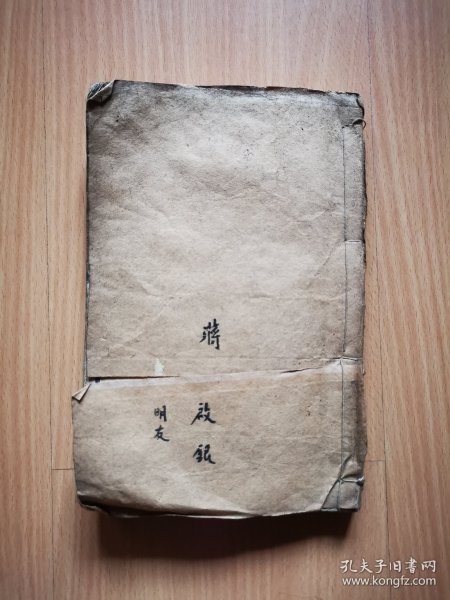 蔣啟銀
明友
孔夫子旧书网
www.kongfz.com